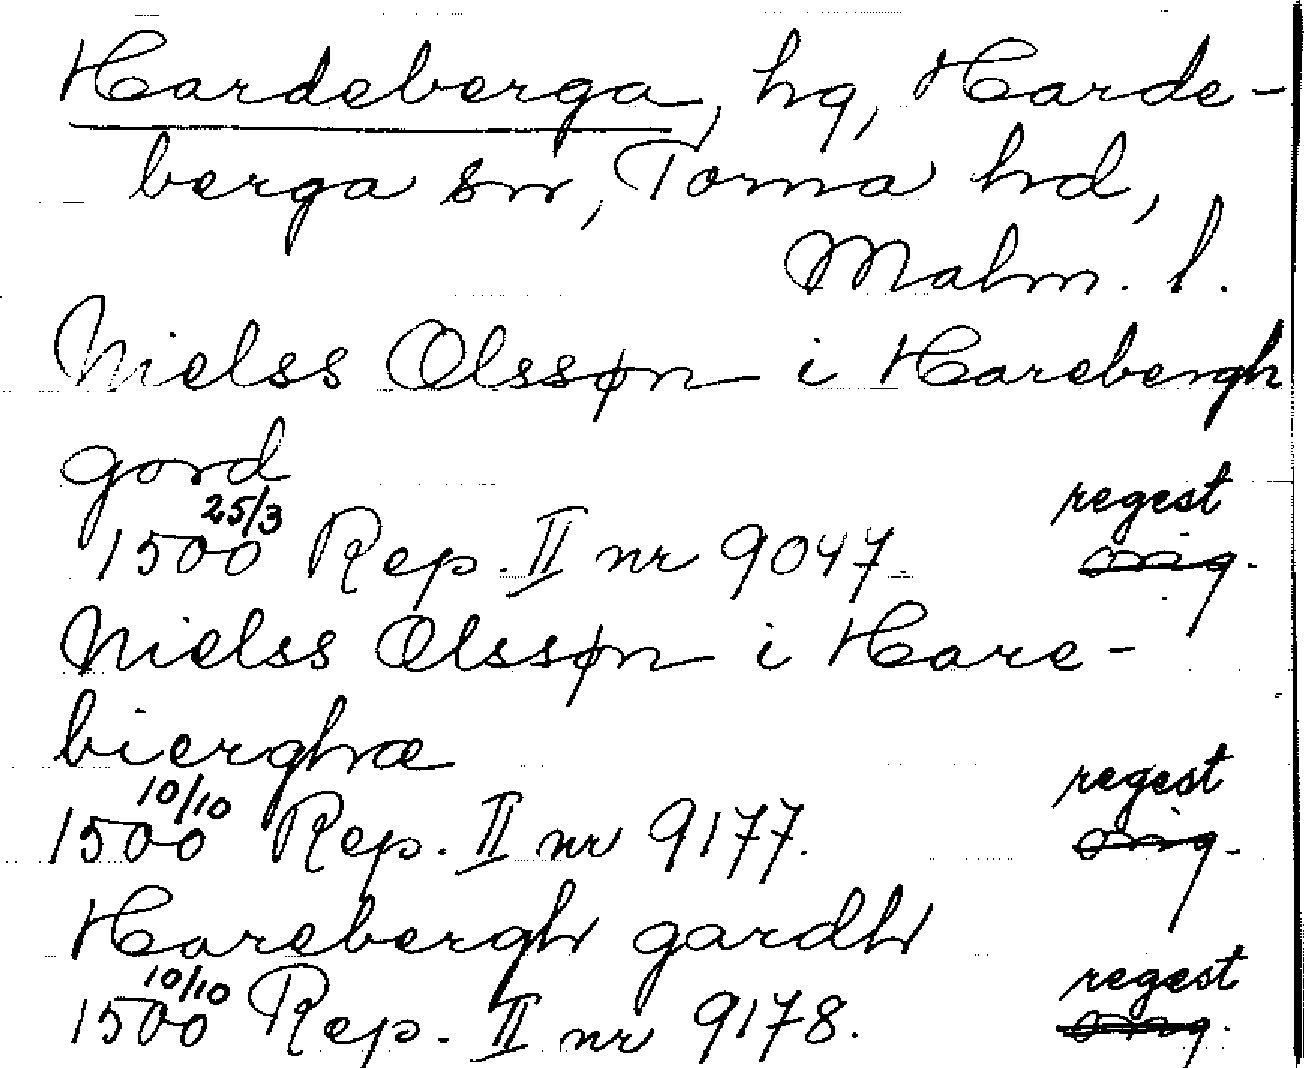 Hardeberga, hg, Harde-
berga sn, Torna hd,
Malm. l.
Nielss Olssøn i Harebergh
gord
25/3 regest
1500 Rep. II nr 9047 orig.
Nielss Olssøn i Hare-
bierghæ
10/10 regest
1500 Rep. II nr 9177. orig.
Harebergh gardh
10/10 regest
1500 Rep. II nr 9178. orig.